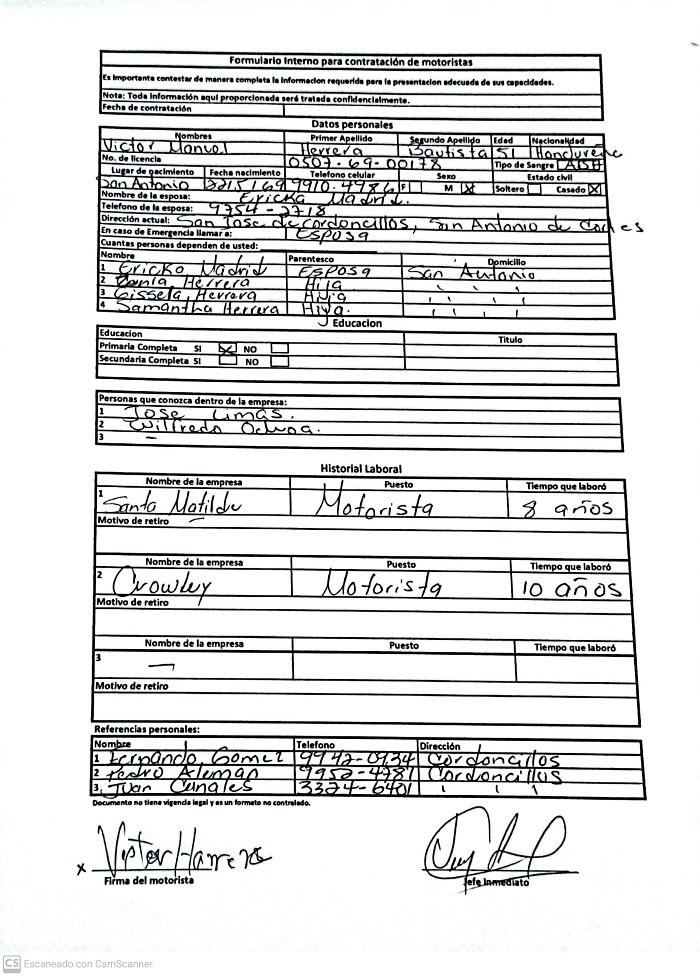 Formulario Interno para contratación de motoristas
Es importante contestar de manera completa la informacion requerida para la presentacion adecuada de sus capacidades.
Nota: Toda información aquí proporcionada será tratada confidencialmente.
Fecha de contratación
Datos personales
Nombres Primer Apellido Segundo Apellido Edad Nacionalidad
Victor Manuel Herrera Bautista 51 Hondureñe
No. de licencia 0507-69-00178 Tipo de Sangre
Lugar de nacimiento Fecha nacimiento Telefono celular Sexo Estado civil
San Antonio 9910-4986 F M X Soltero Casado X
Nombre de la esposa: Ericka Madrid.
Telefono de la esposa: 9754-2718
Dirección actual: San Jose de cordoncillos, San Antonio de Cortes
En caso de Emergencia llamar a: Esposa
Cuantas personas dependen de usted:
Nombre Parentesco Domicilio
1 Ericka Madrid Esposa San Antonio
2 Herrera Hija
3 Gissela Herrera Hija
4 Samantha Herrera Hija.
Educacion
Educacion Titulo
Primaria Completa SI X NO
Secundaria Completa SI NO
Personas que conozca dentro de la empresa:
1 Jose Limas.
2 Wilfredo Ochoa.
3 –
Historial Laboral
Nombre de la empresa Puesto Tiempo que laboró
1 Santa Matilde Motorista 8 años
Motivo de retiro –
Nombre de la empresa Puesto Tiempo que laboró
2 Crowley Motorista 10 años
Motivo de retiro
Nombre de la empresa Puesto Tiempo que laboró
3 –
Motivo de retiro
Referencias personales:
Nombre Telefono Dirección
1 Fernando Gomez 9942-0934 Cordoncillos
2 Pedro Aleman 9952-4781 Cordoncillos
3 Juan Canales 3324-6401
Documento no tiene vigencia legal y es un formato no controlado.
x Victor Herrera
Firma del motorista Jefe Inmediato
CS Escaneado con CamScanner